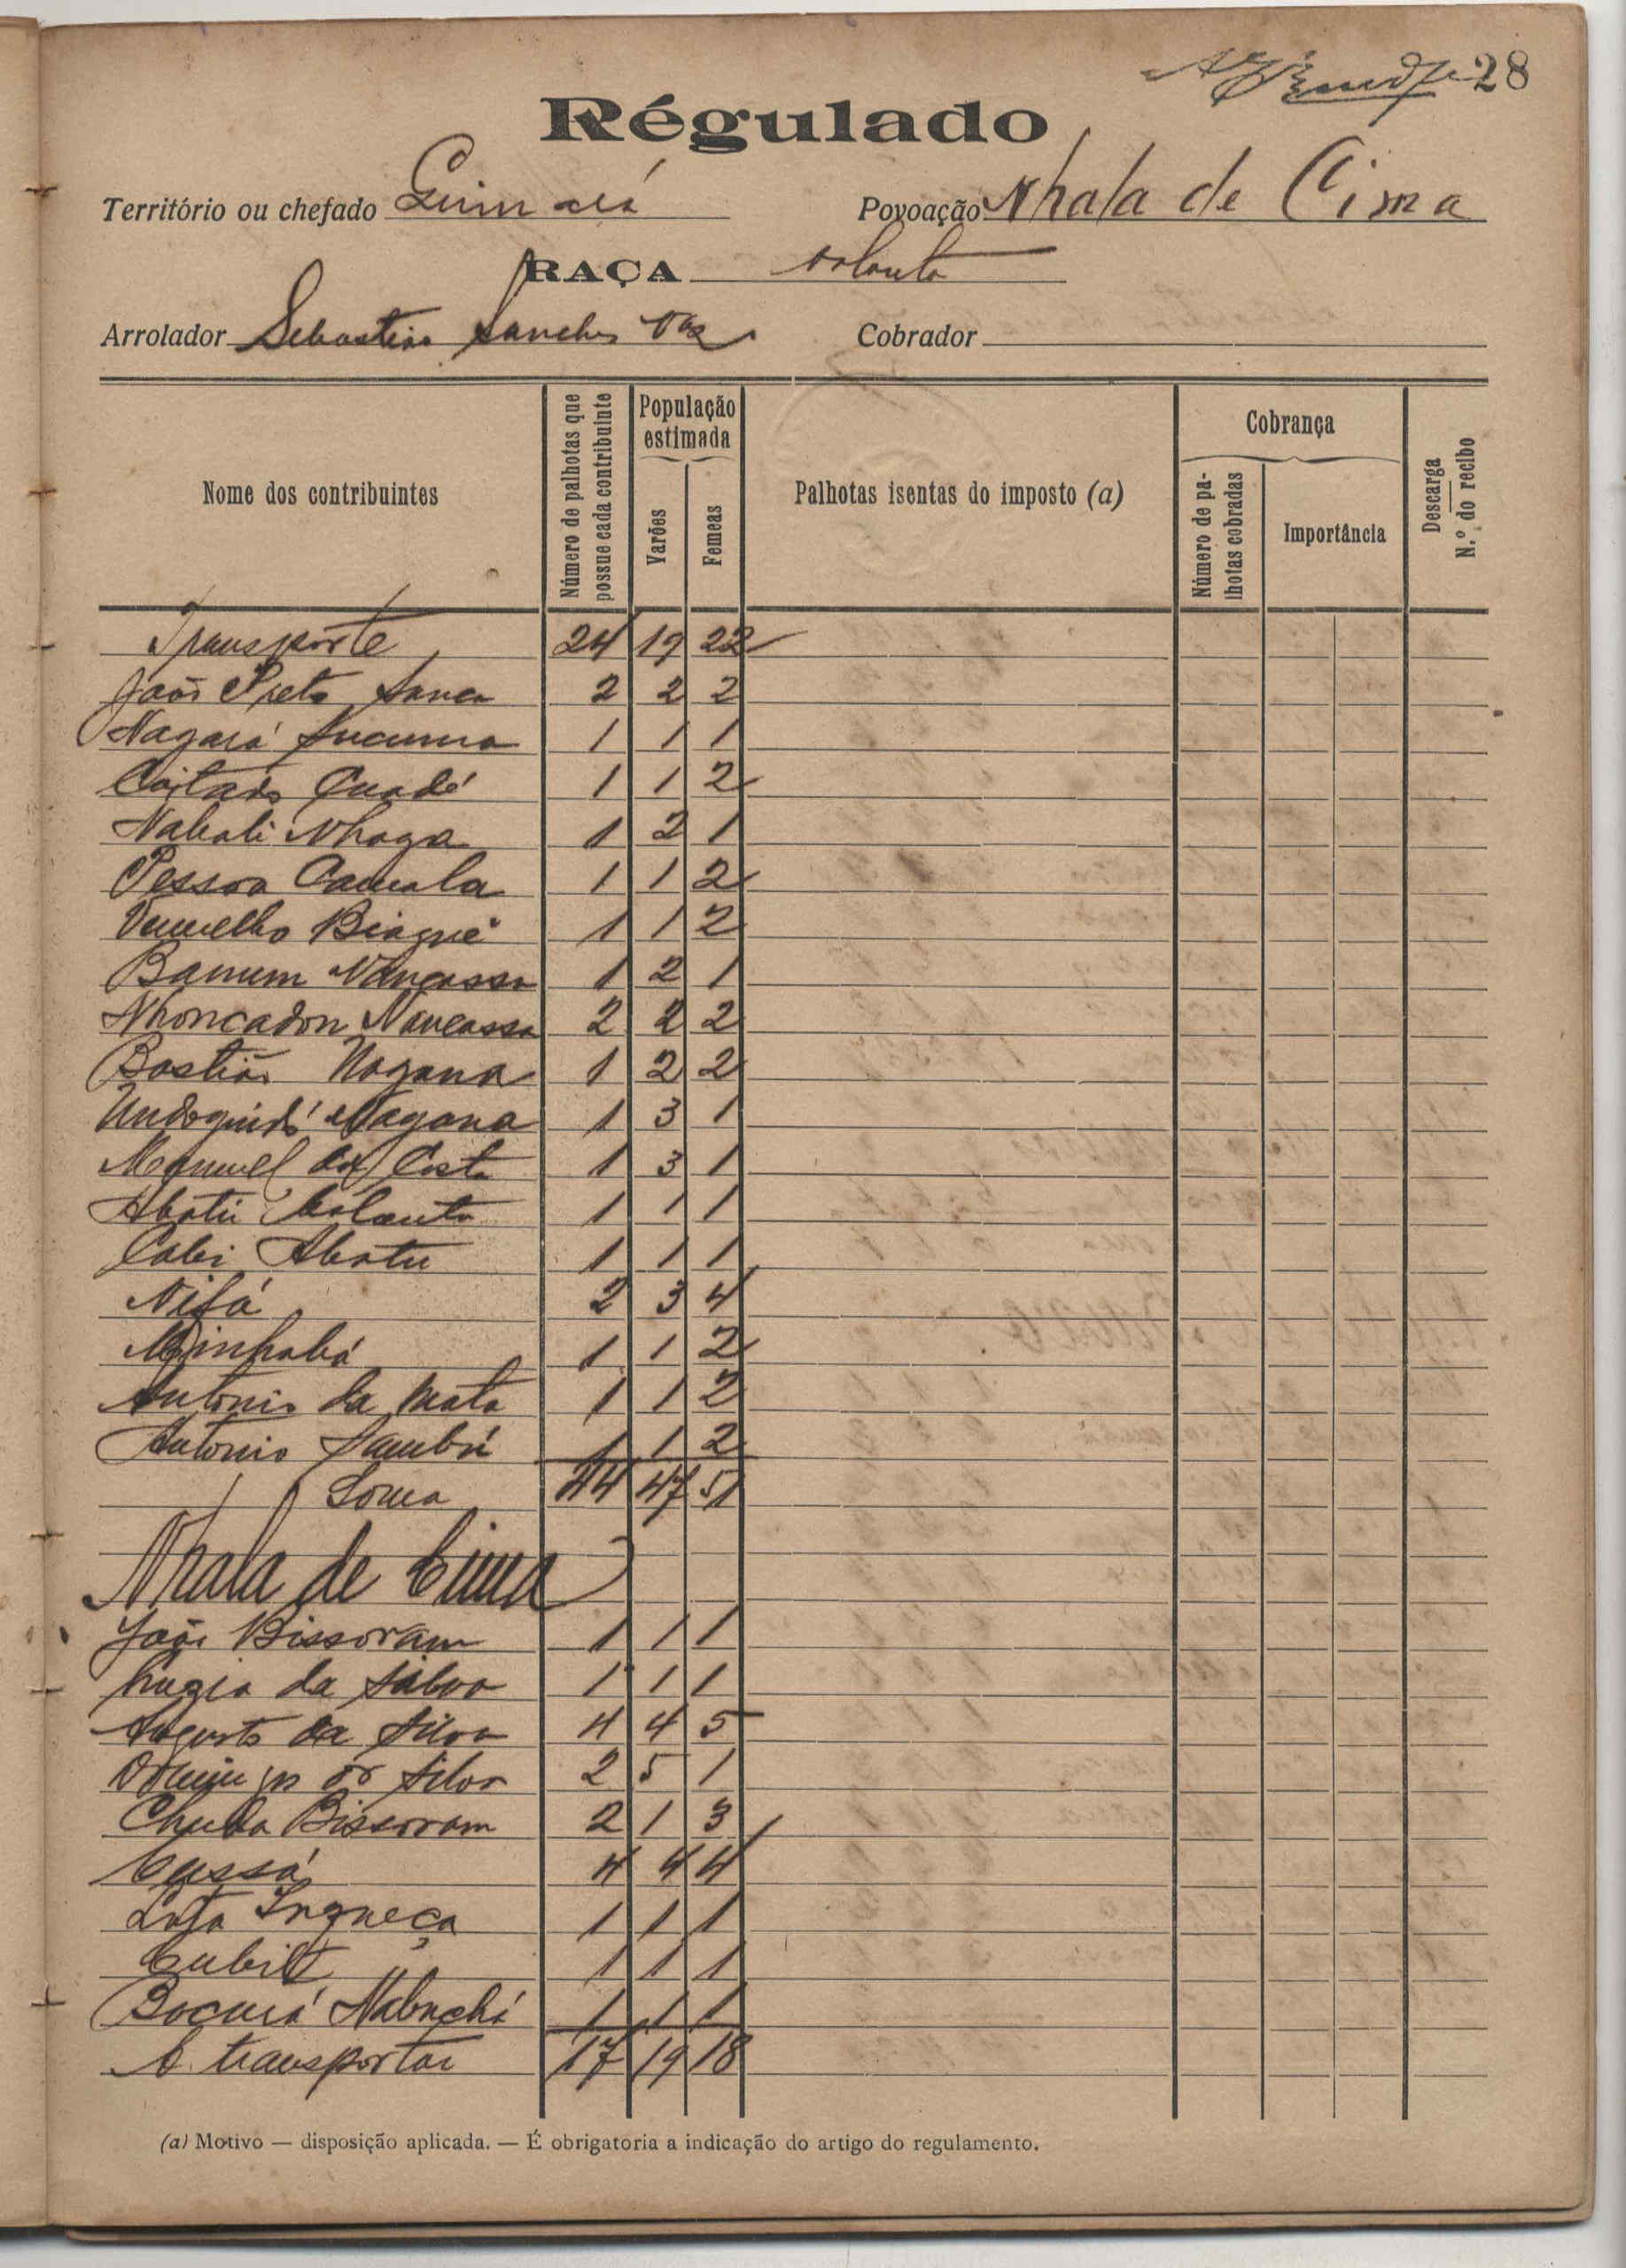 28
Régulado
Território ou chefado
Povoação Nhala de Cima
RAÇA balanta
Arrolador Sebastião Sanches Vaz Cobrador
Nome dos contribuintes
Número de palhotas que possue cada contribuinte
População estimada
Varões
Femeas
Palhotas isentas do imposto (a)
Cobrança
Número de palhotas cobradas
Importância
Descarga
N.º do recibo
Transporte 24 19 22
João Preto Sanca 2 2 2
Nagará 1 1 1
Coitado Quadé 1 1 2
Nabali Nhaga 1 2 1
Pessoa Camala 1 1 2
Vermelho Biagué 1 1 2
Banum Nancassa 1 2 1
Nhoncadon Nancassa 2 2 2
Bastião Nagana 1 2 2
Nagana 1 3 1
Manuel da Costa 1 3 1
Abatu balanta 1 1 1
Cabi Abatu 1 1 1
Nifá 2 3 4
Minhabá 1 1 2
Antonio da Mata 1 1 2
Antonio Sambú 1 1 2
Soma 44 47 51
Nhala de Cima
João Bissoram 1 1 1
da Silva 1 1 1
Augusto da Silva 4 4 5
Domingos da Silva 2 5 1
Chuba Bissoram 2 1 3
Cussá 4 4 4
Lota Ingueça 1 1 1
Cubilt 1 1 1
Bocurá Nabuchá 1 1 1
A transportar 17 19 18
(a) Motivo — disposição aplicada. — É obrigatoria a indicação do artigo do regulamento.